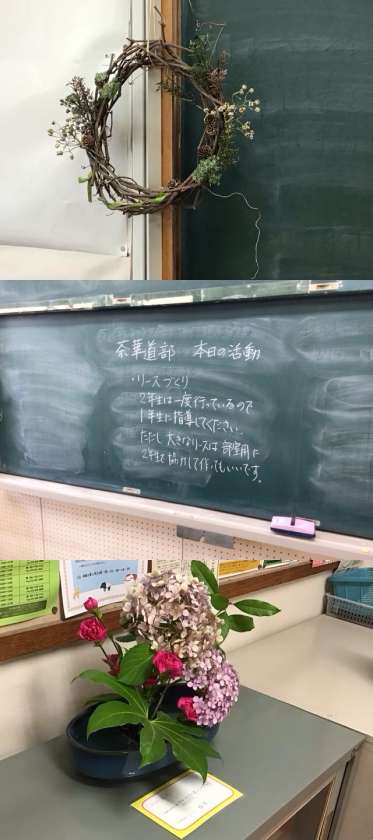 茶華道部 本日の活動
・リースづくり
2年生は一度行っているので
1年生に指導してください。
ただし 大きなリースは 部室用に
2年生で協力して作ってもいいです。